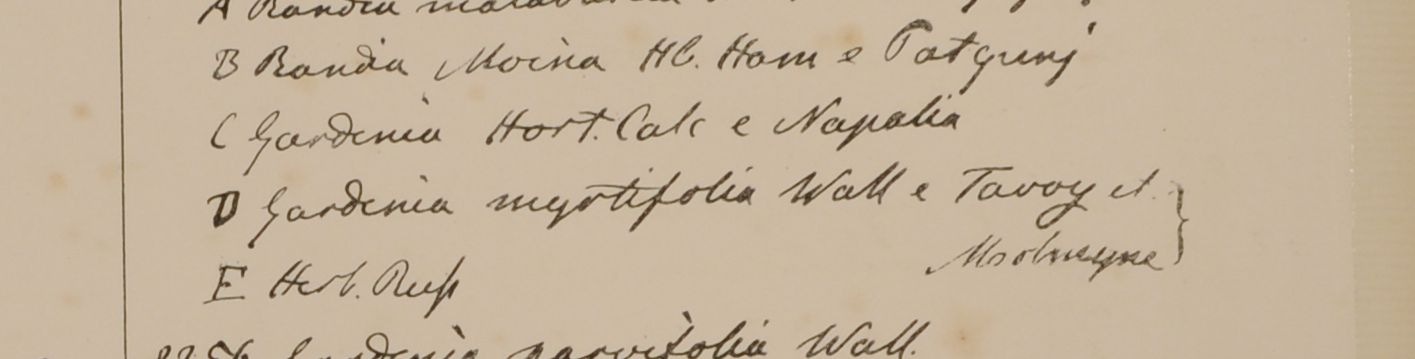 A Randia malabarica
B Randia Moina HB. Ham e Patgunj
C Gardenia Hort. Calc e Napalia
D Gardenia myrtifolia Wall e Tavoy et
Molmeyne
E Herb. Russ
Gardenia parvifolia Wall.